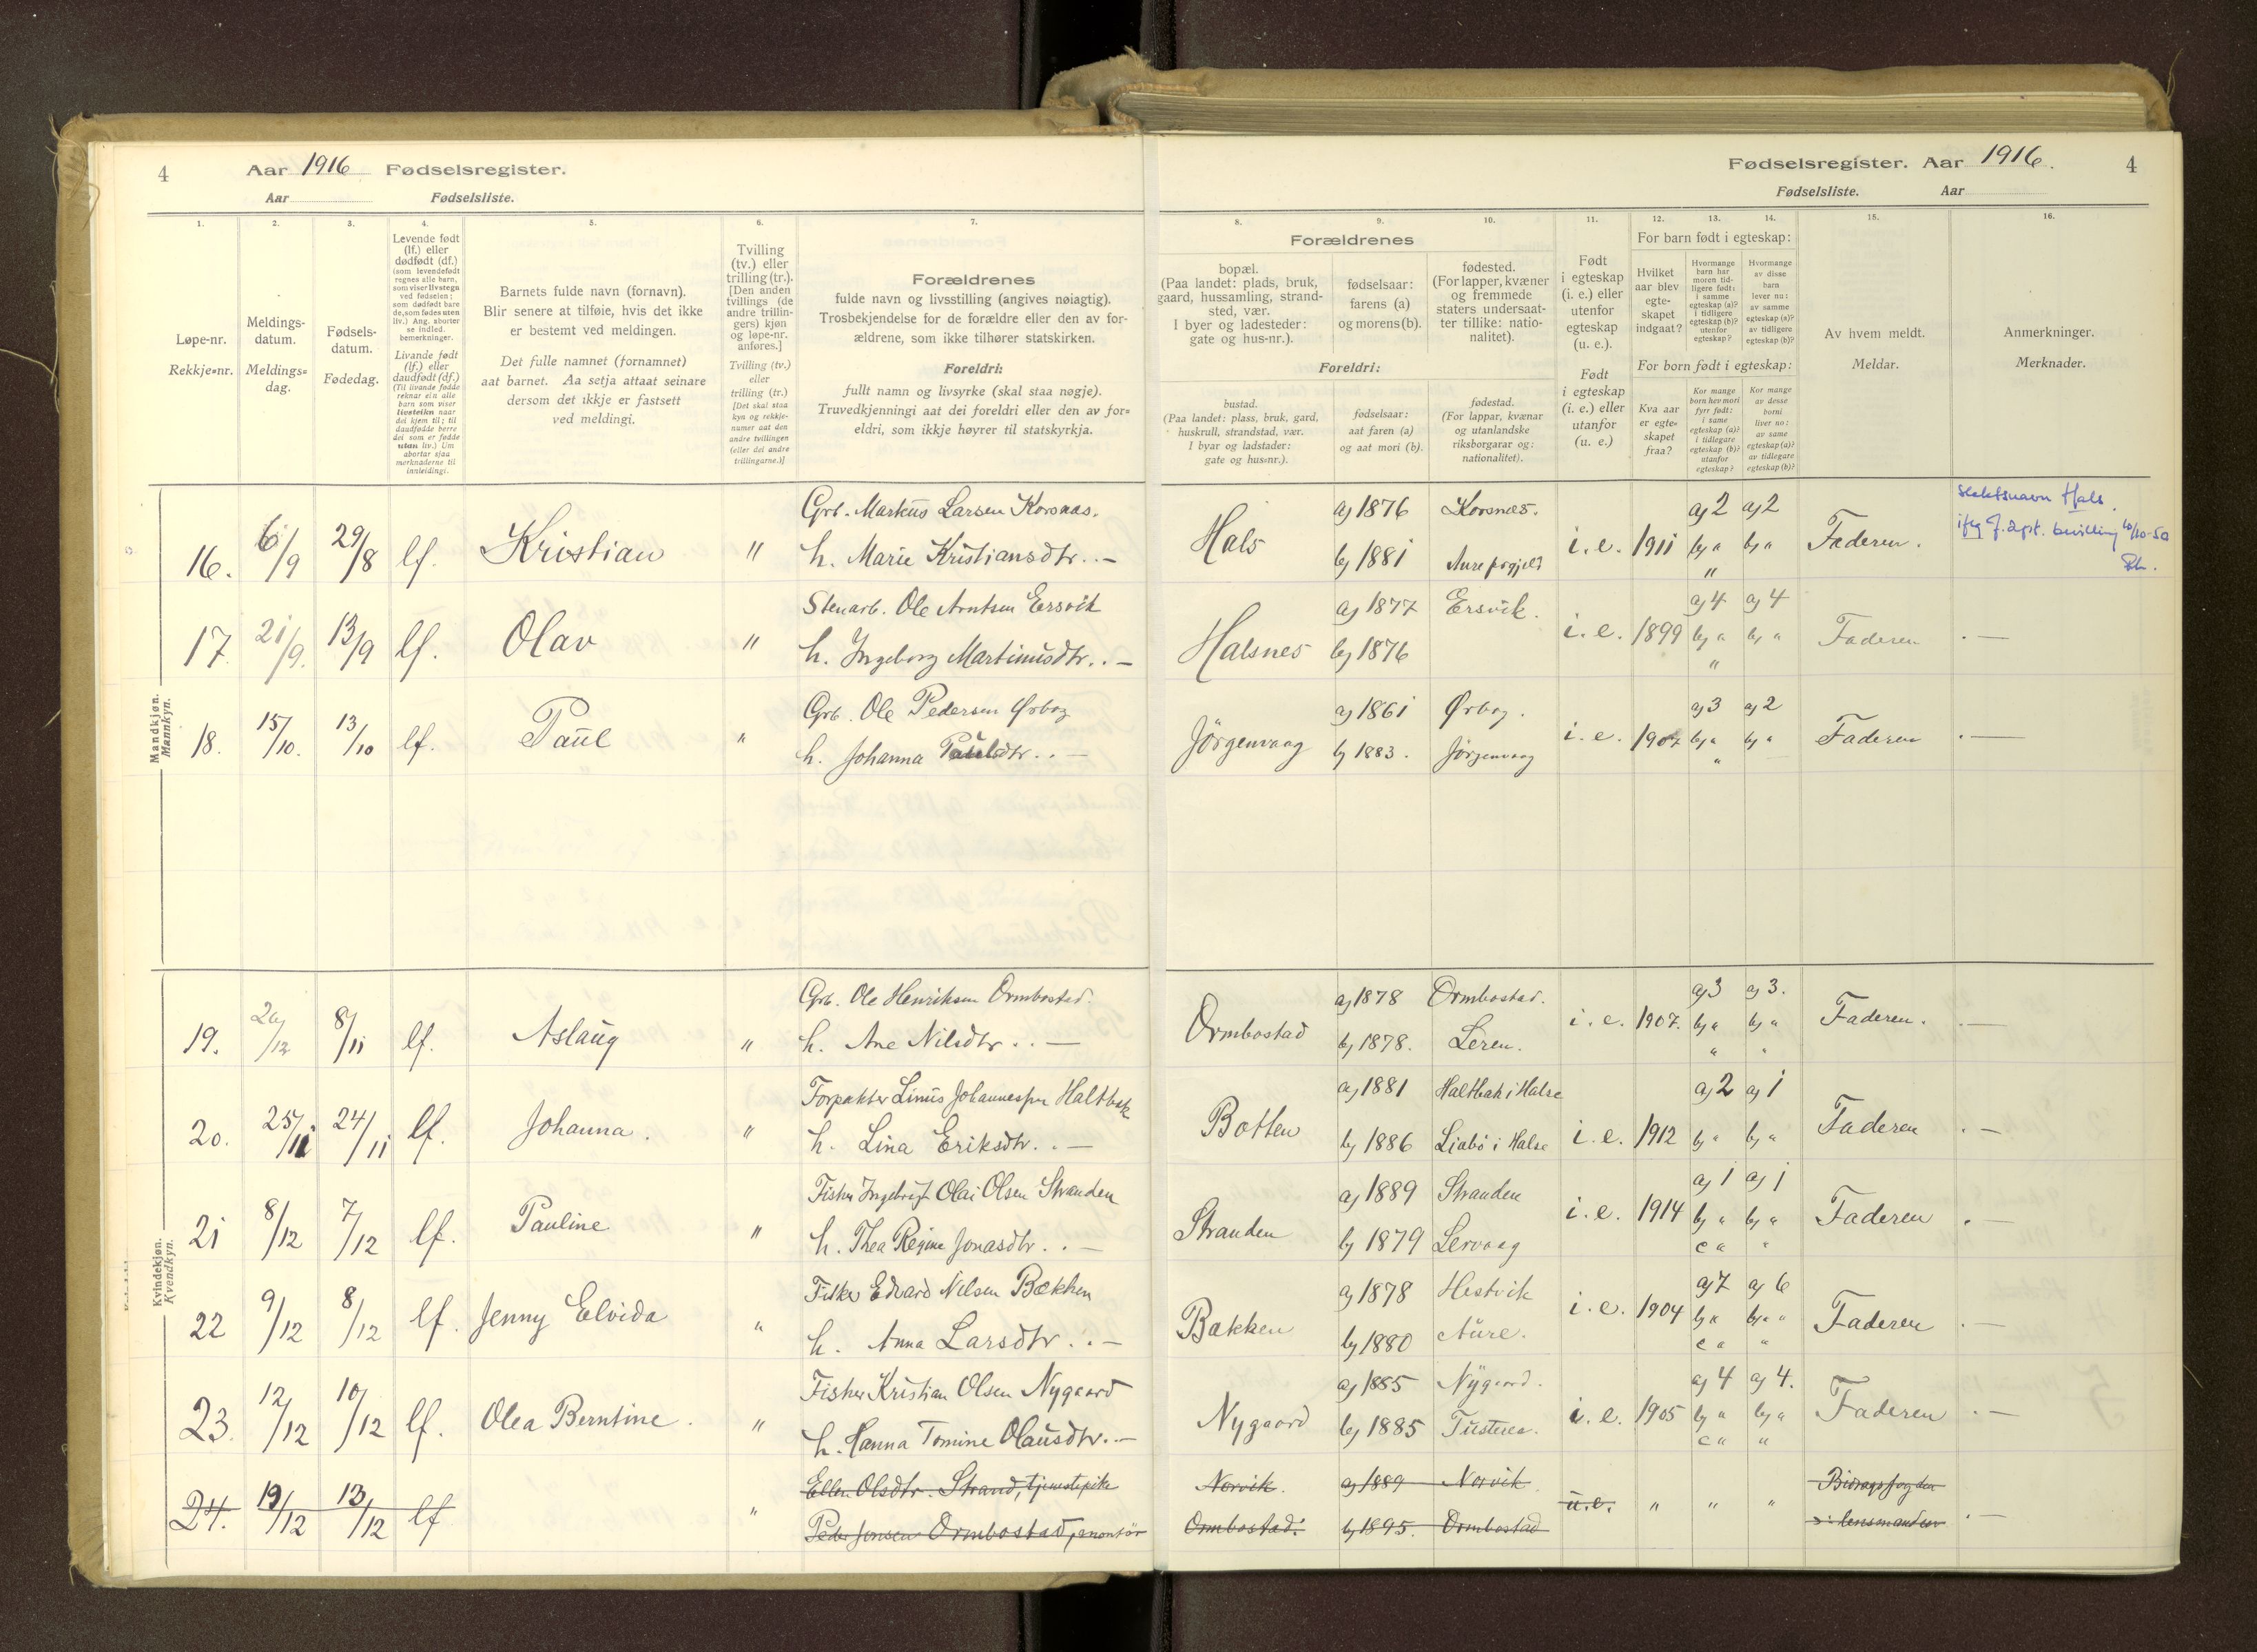 4 Aar 1916 Fødselsregister.
Aar Fødselsliste.
Fødselsregister. Aar 1916. 4
Fødselsliste. Aar
1.
Løpe-nr.
Rekkje=nr.
2.
Meldings-
datum.
Meldings=
dag.
3.
Fødsels-
datum.
Fødedag.
4.
Levende født
(lf.) eller
dødfødt (df.)
(som levendefødt
regnes alle barn,
som viser livstegn
ved fødselen;
som dødfødt bare
de, som fødes uten
liv.) Ang. aborter
se indled.
bemerkninger.
Livande født
(lf.) eller
daudfødt (df.)
(Til livande fødde
reknar ein alle
barn som viser
livsteikn naar
dei kjem til; til
daudfødde berre
dei som er fødde
utan liv.) Um
abortar sjaa
merknaderne til
innleidingi.
5.
Barnets fulde navn (fornavn).
Blir senere at tilføie, hvis det ikke
er bestemt ved meldingen.
Det fulle namnet (fornamnet)
aat barnet. Aa setja attaat seinare
dersom det ikkje er fastsett
ved meldingi.
6.
Tvilling
(tv.) eller
trilling (tr.).
[Den anden
tvillings (de
andre trillin-
gers) kjøn
og løpe-nr.
anføres.]
Tvilling (tv.)
eller
trilling (tr.)
[Det skal staa
kyn og rekkje-
numer aat den
andre tvillingen
(eller dei andre
trillingarne.)]
7.
Forældrenes
fulde navn og livsstilling (angives nøiagtig).
Trosbekjendelse for de forældre eller den av for-
ældrene, som ikke tilhører statskirken.
Foreldri:
fullt namn og livsyrke (skal staa nøgje).
Truvedkjenningi aat dei foreldri eller den av for=
eldri, som ikkje høyrer til statskyrkja.
8.
Forældrenes
bopæl.
(Paa landet: plads, bruk,
gaard, hussamling, strand-
sted, vær.
I byer og ladesteder:
gate og hus-nr.).
Foreldri:
bustad.
(Paa landet: plass, bruk, gard,
huskrull, strandstad, vær.
I byar og ladstader:
gate og hus=nr.).
9.
fødselsaar:
farens (a)
og morens (b).
fødselsaar:
aat faren (a)
og aat mori (b).
10.
fødested.
(For lapper, kvæner
og fremmede
staters undersaat-
ter tillike: natio-
nalitet).
fødestad.
(For lappar, kvænar
og utanlandske
riksborgarar og:
nationalitet).
11.
Født
i egteskap
(i. e.) eller
utenfor
egteskap
(u. e.).
Født
i egteskap
(i. e.) eller
utanfor
(u. e.)
12. 13. 14.
For barn født i egteskap:
Hvilket
aar blev
egte-
skapet
indgaat?
Hvormange
barn har
moren tid-
ligere født:
i samme
egteskap (a)?
i tidligere
egteskap (b)?
utenfor
egteskap?
Hvormange
av disse
barn
lever nu:
av samme
egteskap (a)?
av tidligere
egteskap (b)?
For born født i egteskap:
Kva aar
er egte=
skapet
fraa?
Kor mange
born hev mori
fyrr født:
i same
egteskap (a)?
i tidlegare
egteskap (b)?
utanfor
egteskap?
Kor mange
av desse
borni
liver no:
av same
egteskap (a)?
av tidlegare
egteskap (b)?
15.
Av hvem meldt.
Meldar.
16.
Anmerkninger.
Merknader.
Mandkjøn.
Mannkyn.
16. 6/9 29/8 lf. Kristian "
Grb. Markus Larsen Korsnæs.
h. Marie Kristiansdtr. . —
Hals
a) 1876 Korsnæs.
b) 1881 Aure prgjeld
i. e. 1911
a) 2 a) 2
b) " b) "
"
Faderen.
slektsnavn Hals.
ifg J. dpt. bevilling 10/10-50
17. 21/9. 13/9 lf. Olav "
Stenarb. Ole Arntsen Ersvik
h. Ingeborg Martinusdtr. . —
Halsnes
a) 1877 Ersvik.
b) 1876
i. e. 1899
a) 4 a) 4
b) " b) "
"
Faderen . —
18. 15/10. 13/10 lf. Paul "
Grb. Ole Pedersen Ørbog
h. Johanna Paulsdtr. . —
Jørgenvaag
a) 1861 Ørbog.
b) 1883. Jørgenvaag
i. e. 1907
a) 3 a) 2
b) " b) "
"
Faderen . —
Kvindekjøn.
Kvendkyn.
19. /12 8/11 lf. Aslaug "
Grb. Ole Henriksen Ormbostad.
h. Ane Nilsdtr. . . —
Ormbostad
a) 1878 Ormbostad.
b) 1878. Leren.
i. e. 1907.
a) 3 a) 3.
b) " b) "
" "
Faderen. . —
20. 25/11 24/11 lf. Johanna. "
Forpakter Linus Johannessen Haltbak
h. Lina Eriksdtr. . —
Botten
a) 1881 Haltbak i Halse
b) 1886 Liabö i Halse
i. e. 1912
a) 2 a) 1
b) " b) "
Faderen . —
21 8/12 7/12 lf. Pauline "
Fisker Ingebrigt Olai Olsen Stranden
h. Thea Regine Jonasdtr. . —
Stranden
a) 1889 Stranden
b) 1879 Lervaag
i. e. 1914
a) 1 a) 1
b) " b) "
c " "
Faderen . —
22 9/12 8/12 lf. Jenny Elvida "
Fisker Edvard Nilsen Bakken
h. Anna Larsdtr. . . —
Bakken
a) 1878 Hestvik
b) 1880 Aure.
i. e. 1904
a) 7 a) 6
b) " b) "
c " "
Faderen . —
23. 12/12 10/12 lf. Olea Berntine. "
Fisker Kristian Olsen Nygaard
h. Hanna Tomine Olausdtr. . —
Nygaard
a) 1885 Nygaard.
b) 1885 Tusteren.
i. e. 1905
a) 4 a) 4.
b) " b) "
c " "
Faderen . —
24. 19/12 13/12 lf "
Ellen Olsdtr. Strand, tjenestepike
Peder Jensen Ormbostad,
Norvik.
Ormbostad.
a) 1889 Norvik
b) 1895. Ormbostad
u. e. " " "
Bidragsfogden
ɔ: lensmanden . —